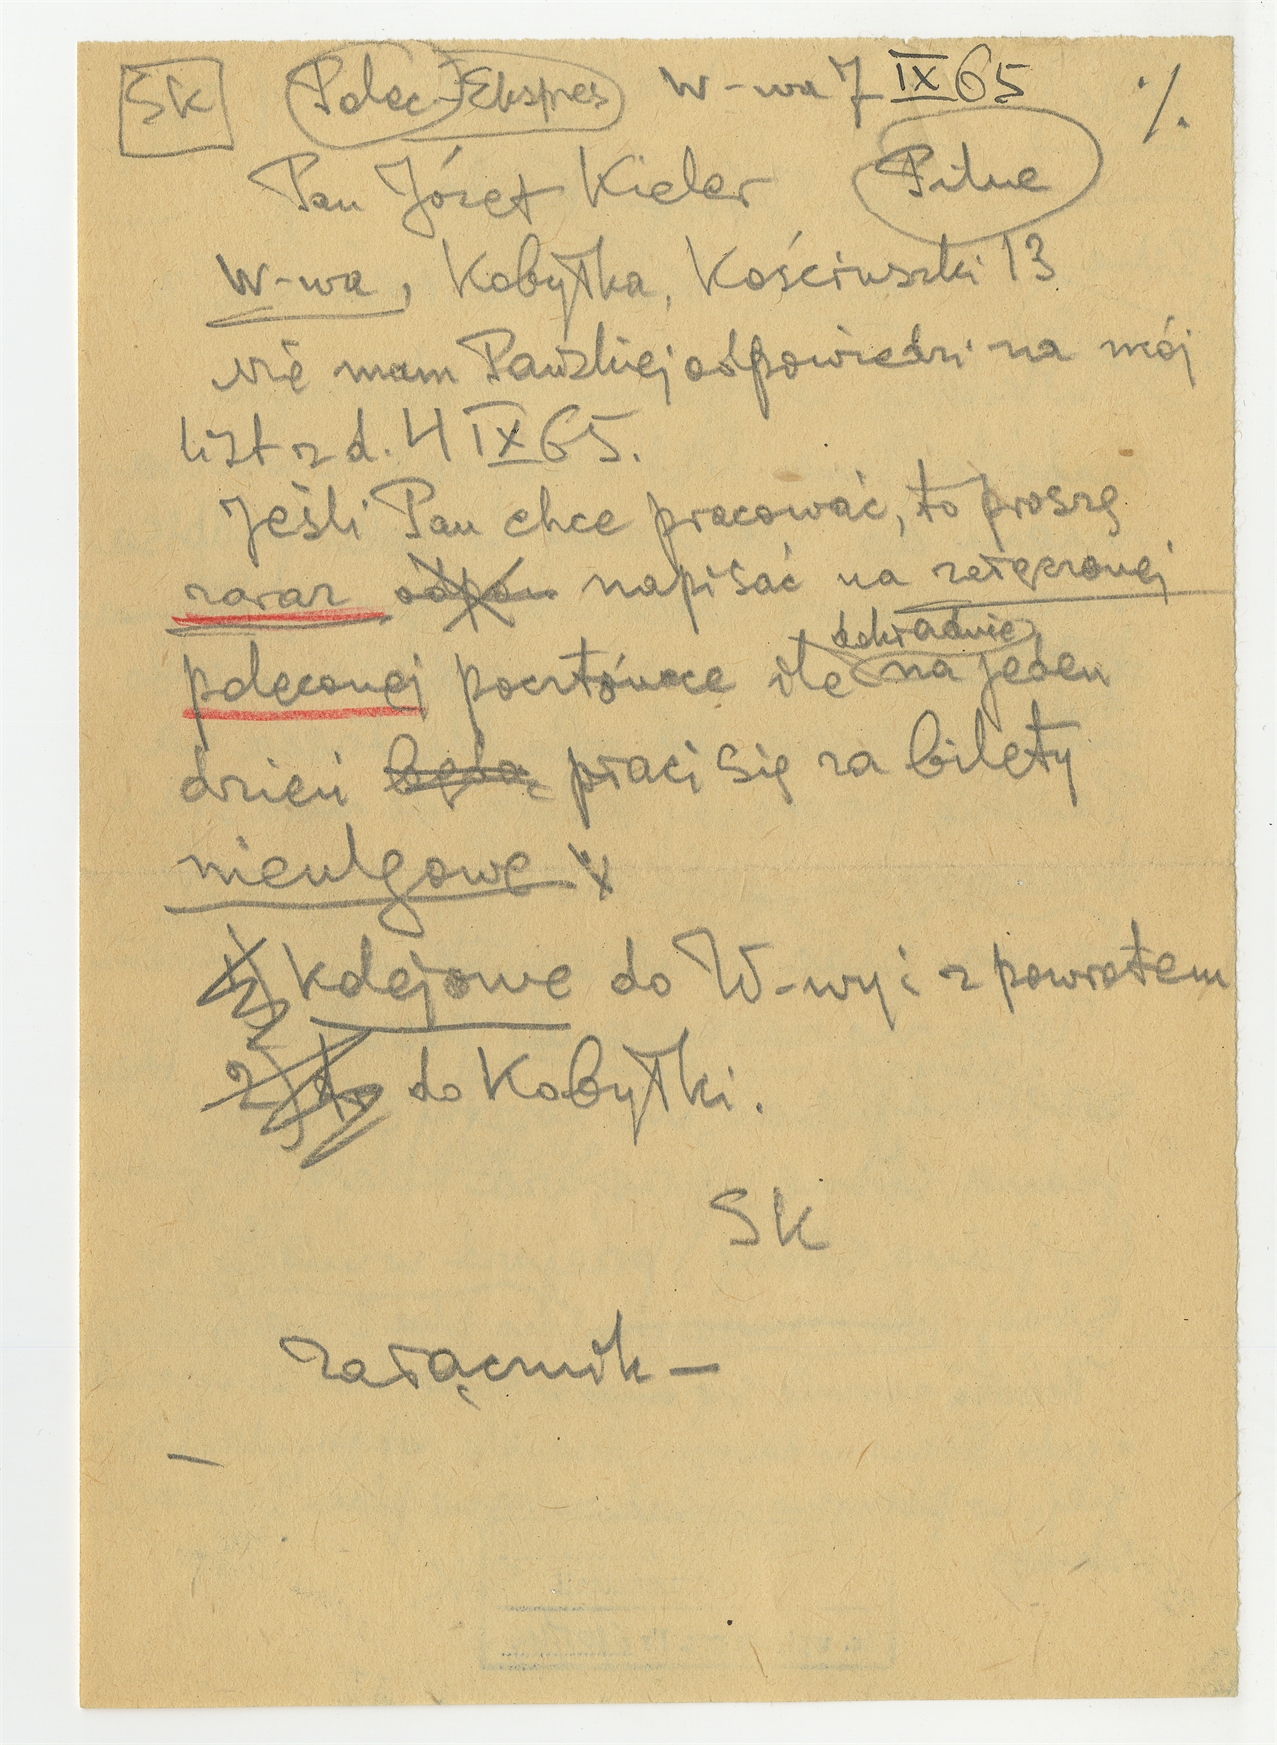 SK Polec. Ekspres W-wa 7 IX 65 ./.
Pan Józef Kieler Pilne
W-wa, Kobyłka, Kościuszki 13
Nie mam Pańskiej odpowiedzi na mój
list z d. 4 IX 65.
Jeśli Pan chce pracować, to proszę
zaraz odpow. napisać na załączonej
poleconej pocztówce ile dokładnie na jeden
dzień będą płaci się za bilety
nieulgowe
1) kolejowe do W-wy i z powrotem
2) do Kobyłki.
SK
załącznik —
—